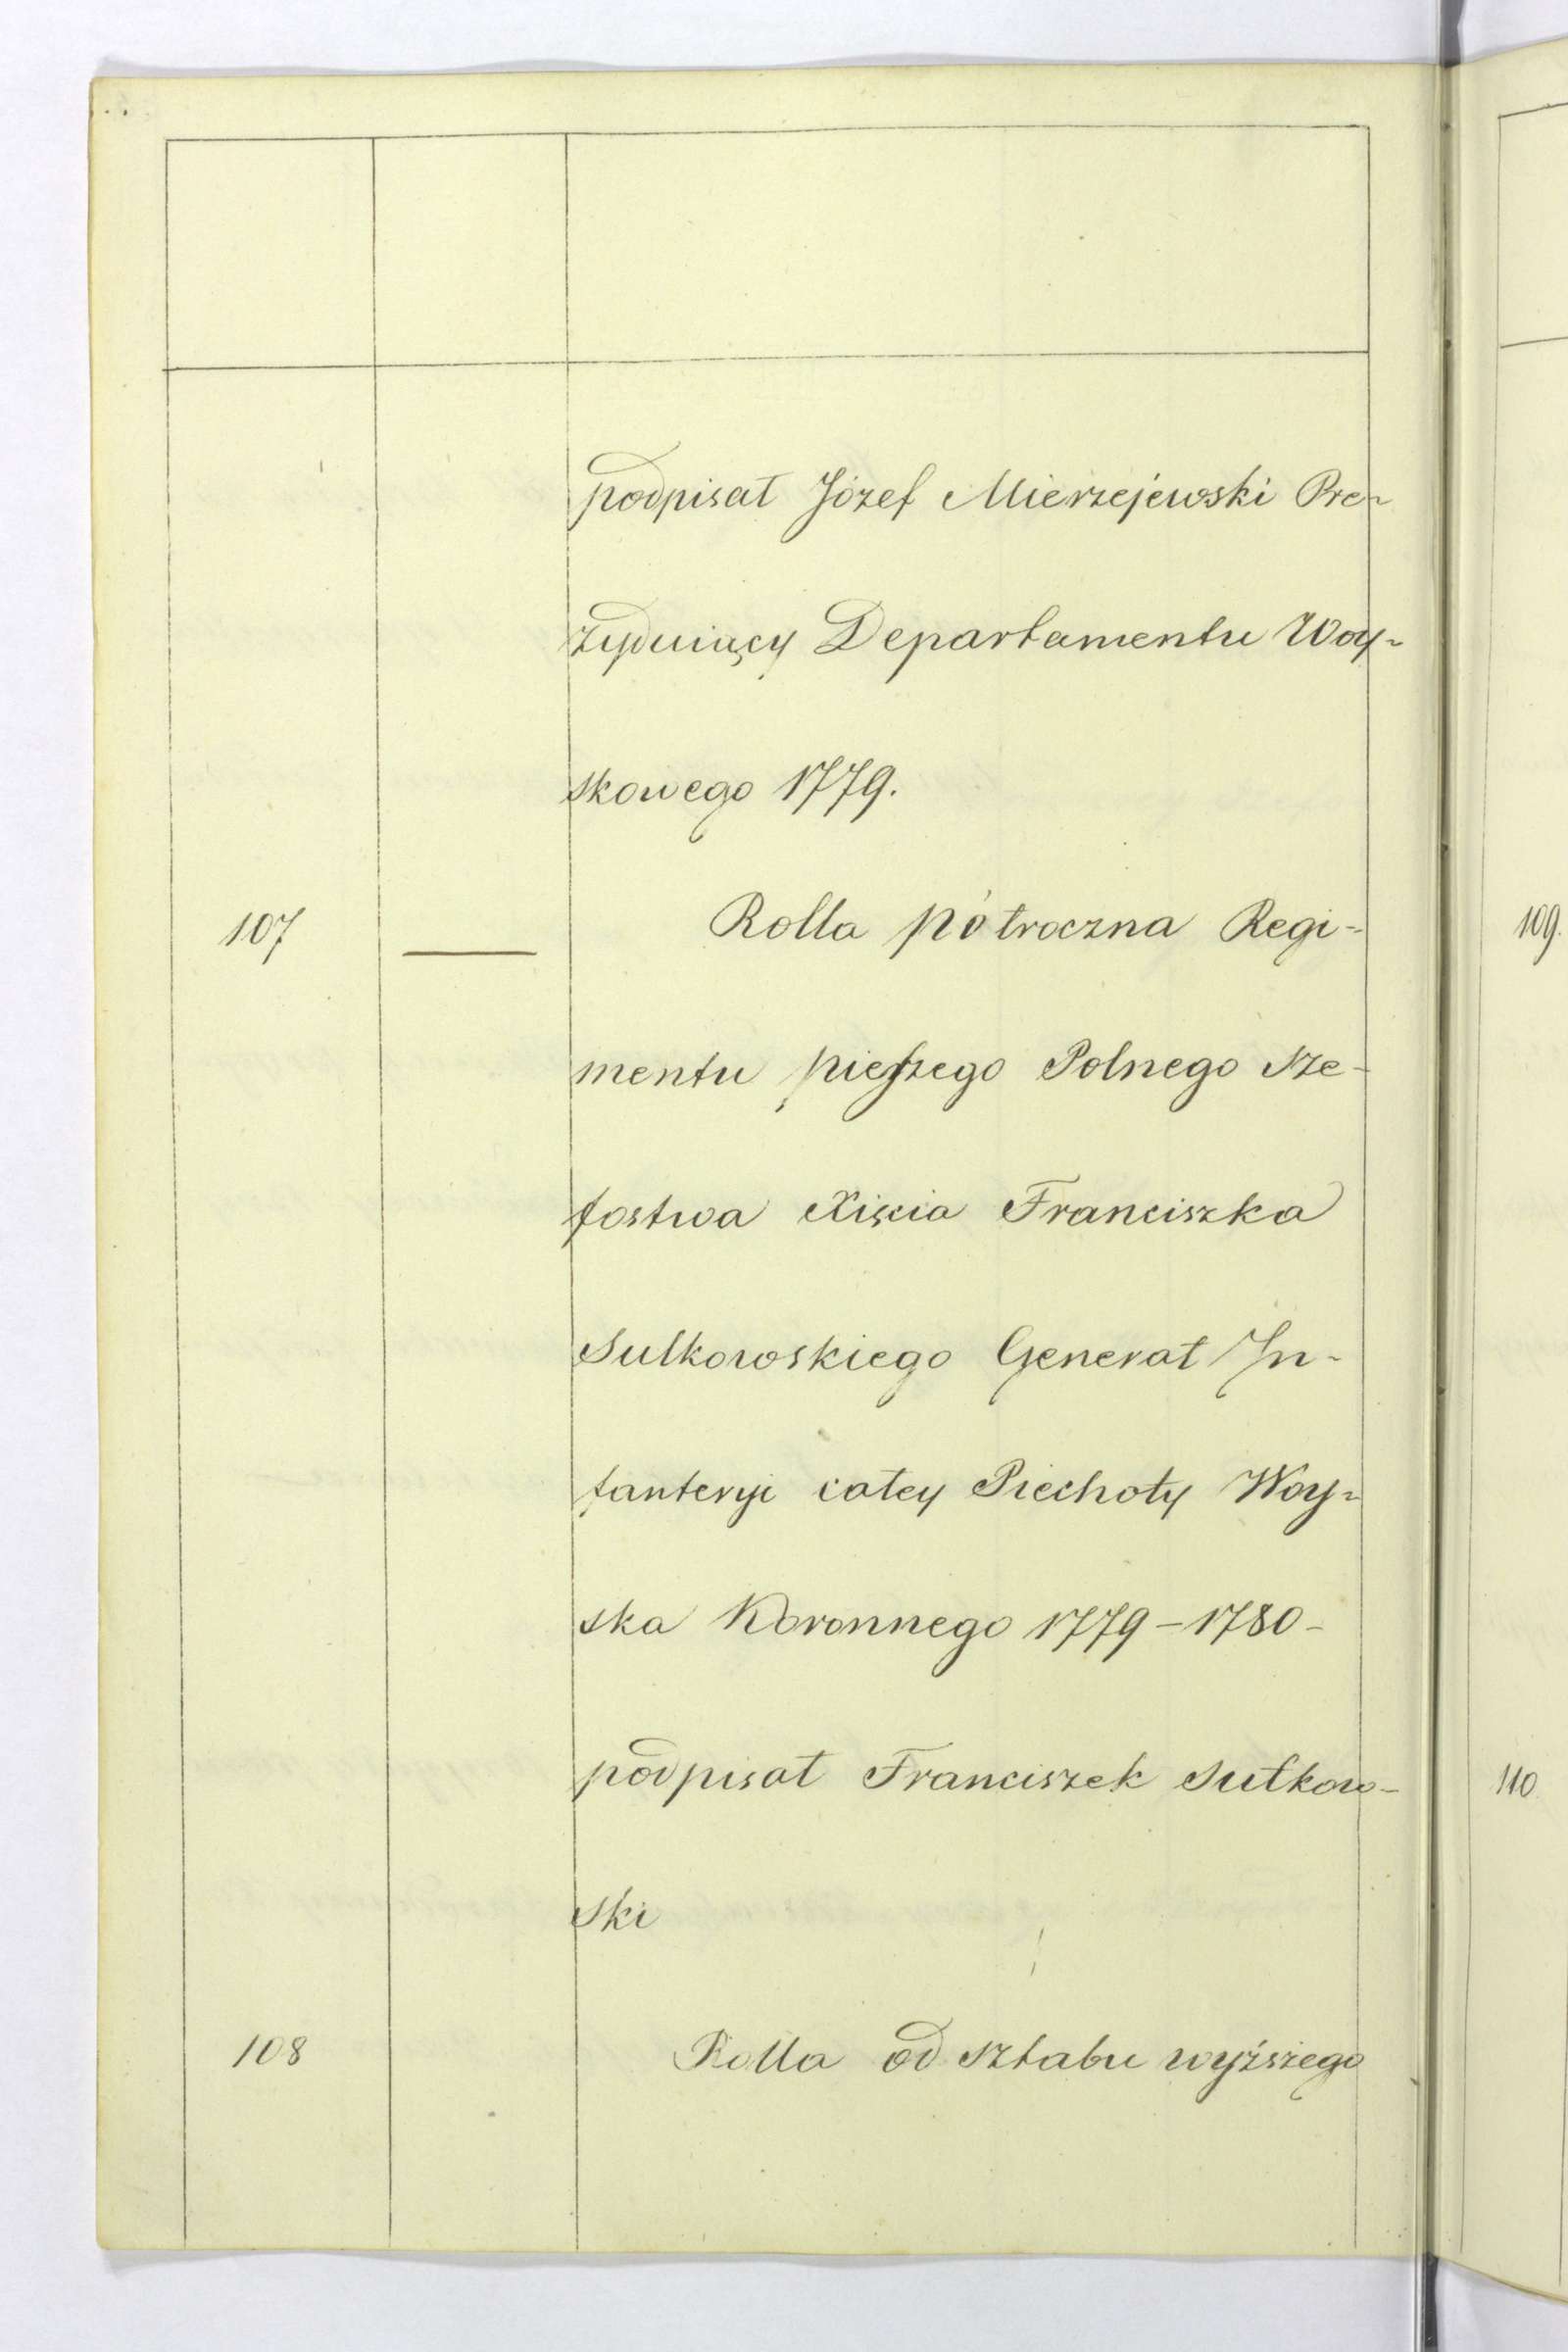 podpisał Józef Mierzejewski Pre-
zyduiący Departamentu Woy-
skowego 1779.
107 — Rolla półroczna Regi-
mentu pieszego Polnego Sze-
fostwa Xięcia Franciszka
Sulkowskiego Generał In-
fanteryi całey Piechoty Woy-
ska Koronnego 1779-1780-
podpisał Franciszek Sułkow-
ski
108 Rolla od sztabu wyższego
109.
110